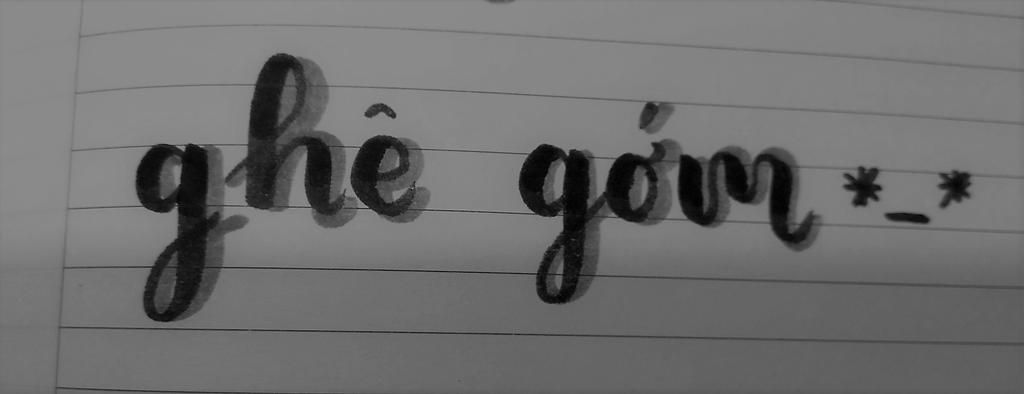 ghê gớm *_*